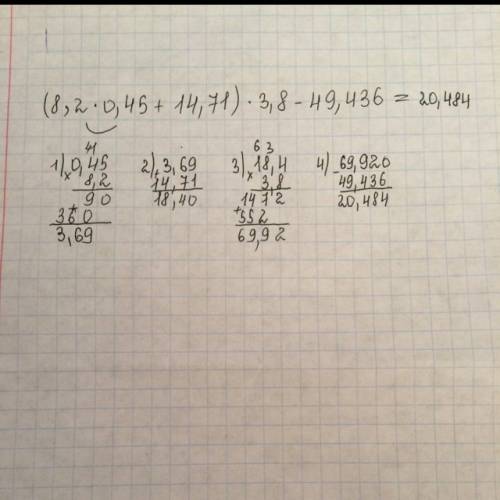 (8,2·0,45+14,71)·3,8-49,436=20,484
41 63
1) 0,45 2) 3,69 3) 18,4 4) 69,920
× 8,2 + 14,71 × 3,8 - 49,436
90 18,40 1472 20,484
+ 360 + 552
3,69 69,92